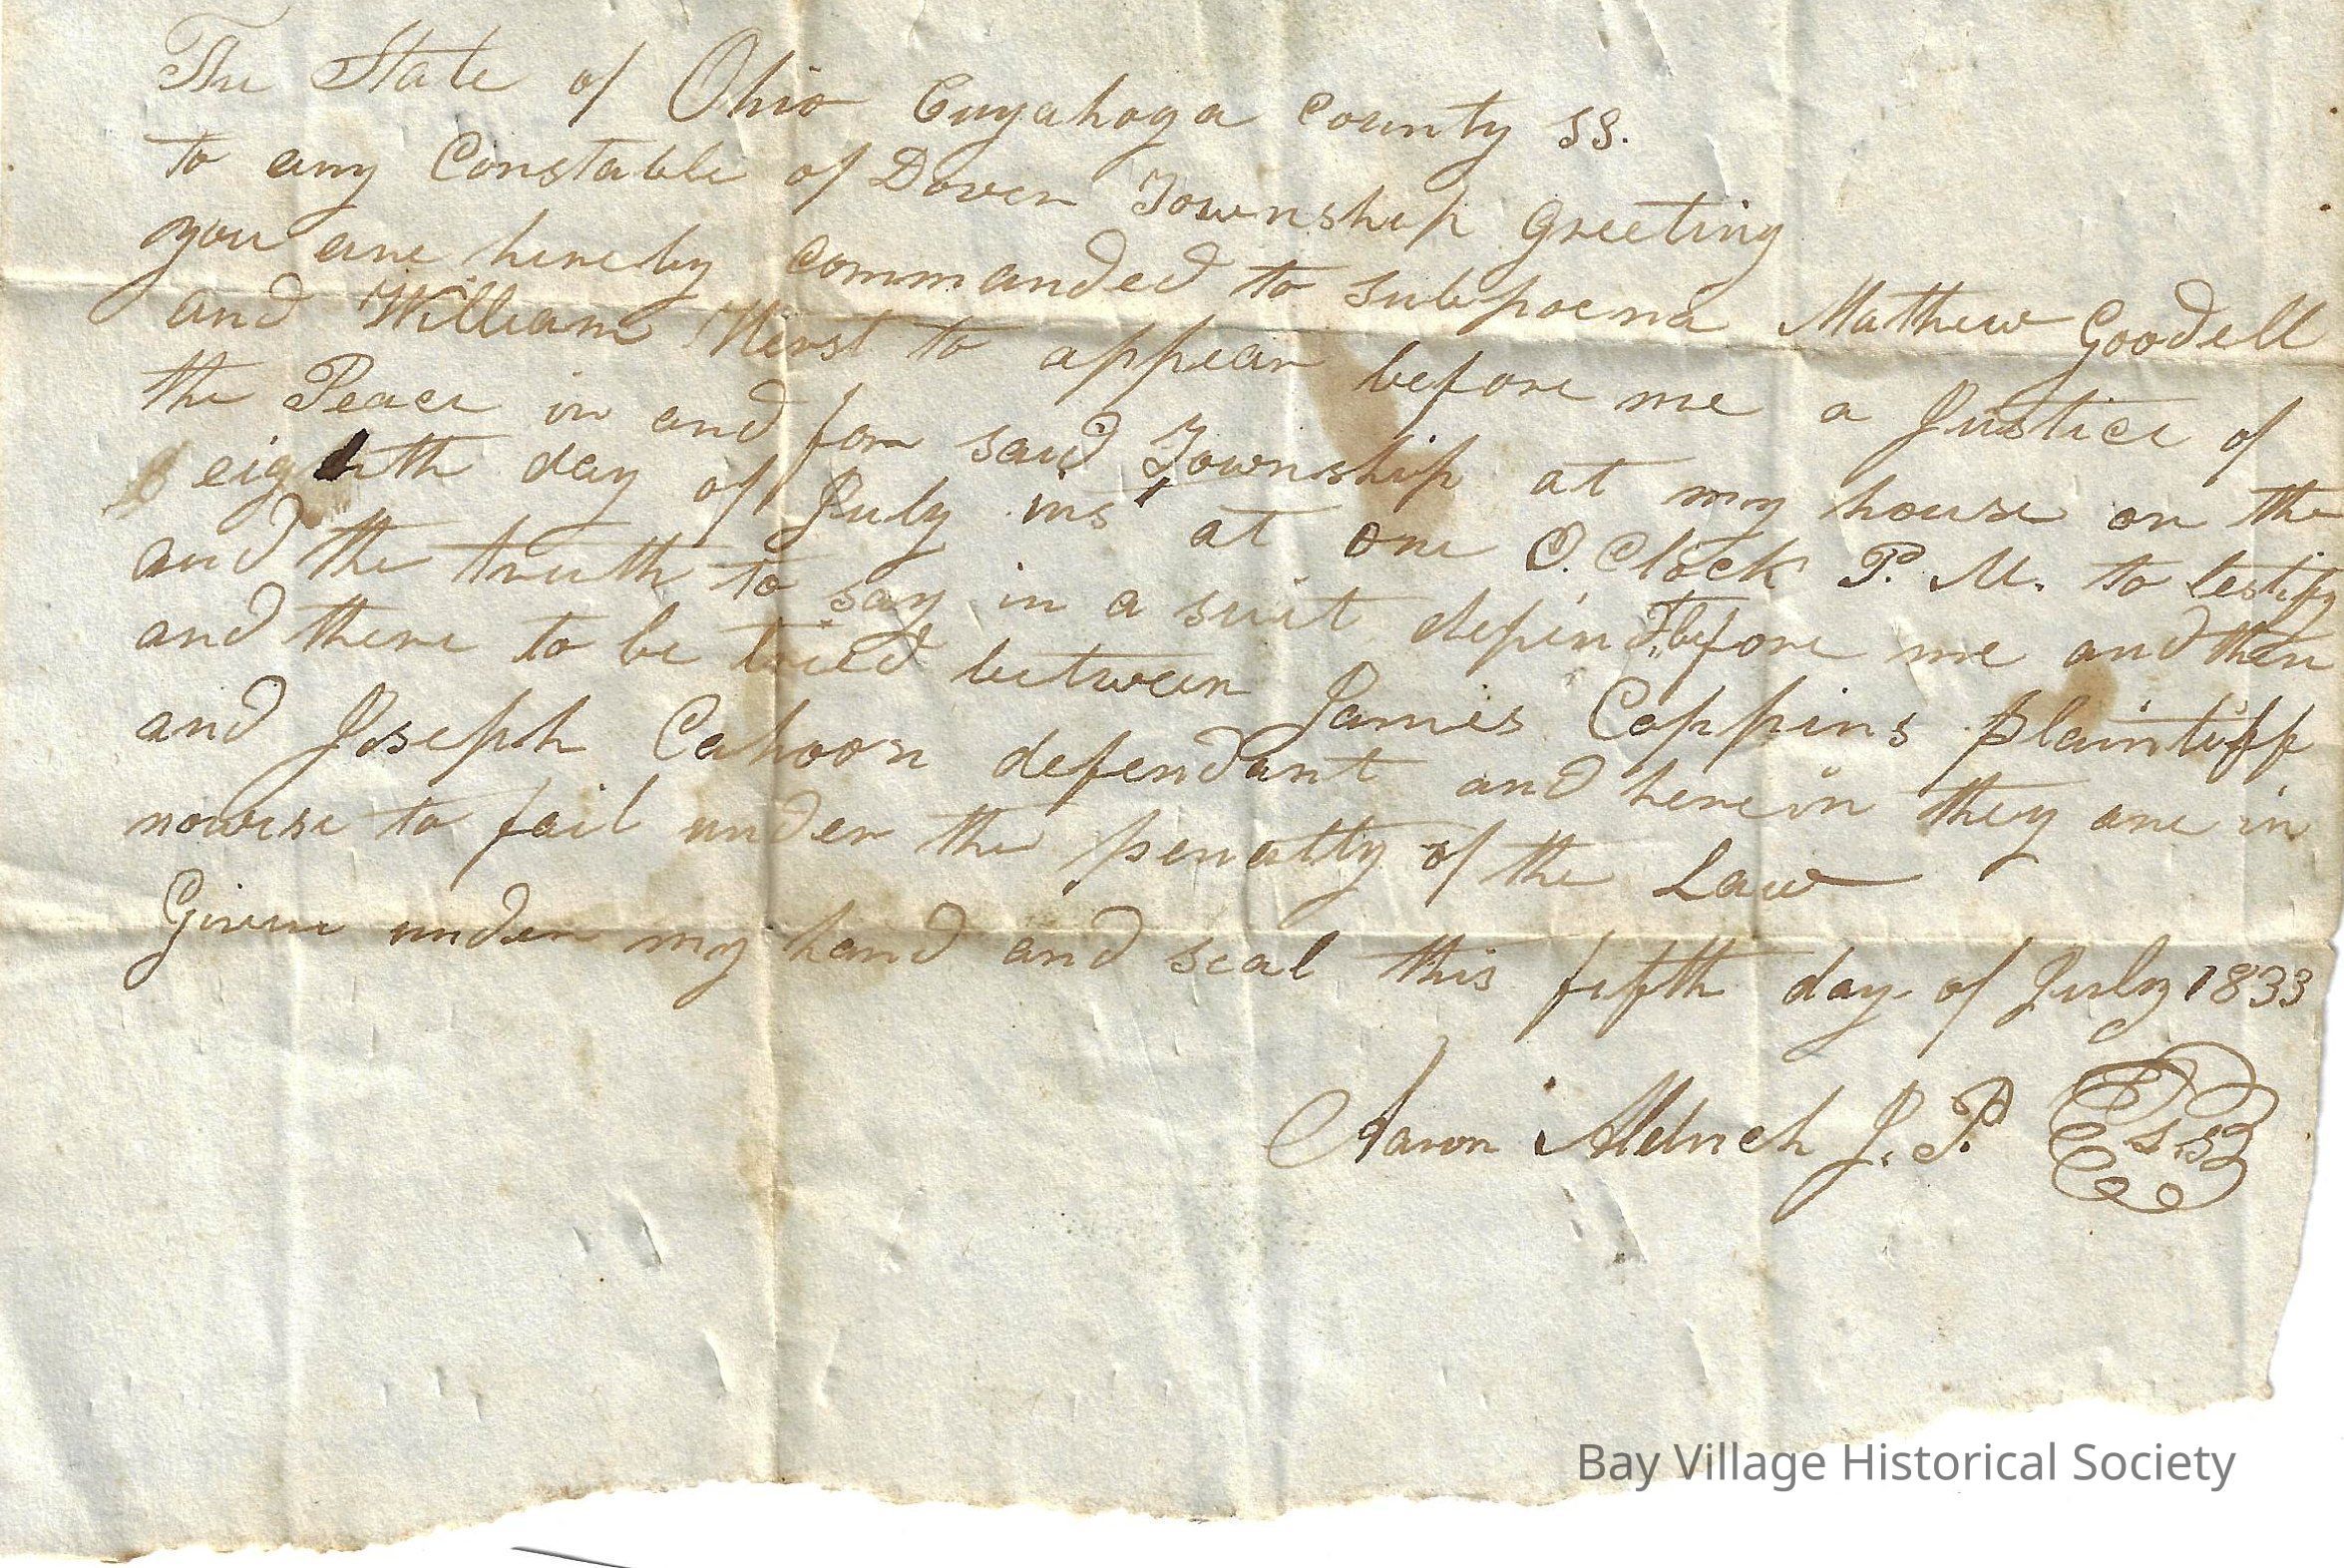 The State of Ohio Cuyahoga County ss.
to any Constable of Dover Township Greeting
you are hereby commanded to subpoena Mathew Goodell
and William Hirst to appear before me a Justice of
the Peace in and for said Township at my house on the
eighth day of July inst at one O. Clock P. M. to testify
and the truth to say in a suit depend before me and then
and there to be tried between James Coppins Plaintiff
and Joseph Cahoon defendant and herein they are in
nowise to fail under the penalty of the Law
Given under my hand and seal this fifth day of July 1833
Aaron Aldrich J. P.
Bay Village Historical Society